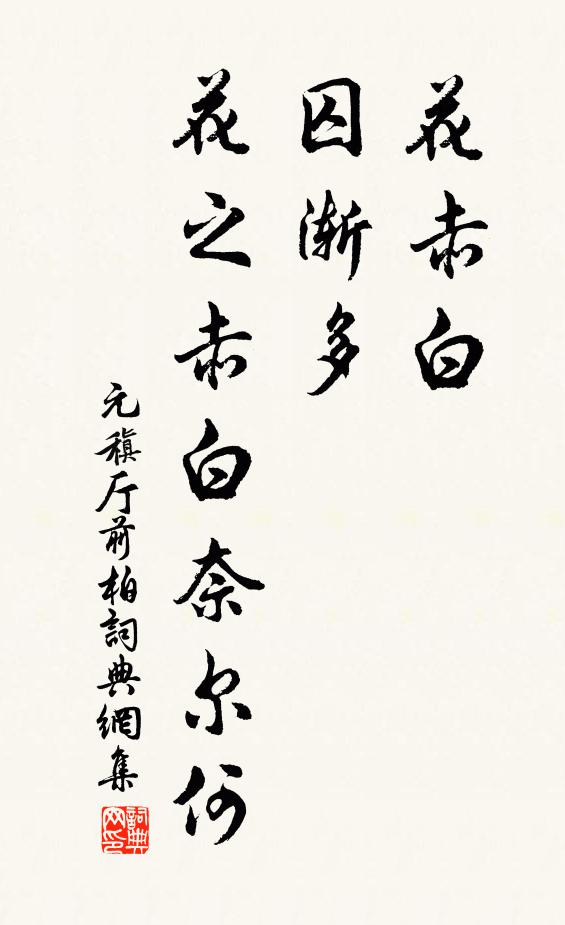 花赤白
囚渐多
花之赤白奈尔何
元稹厅前柏詞典網集
詞典网印